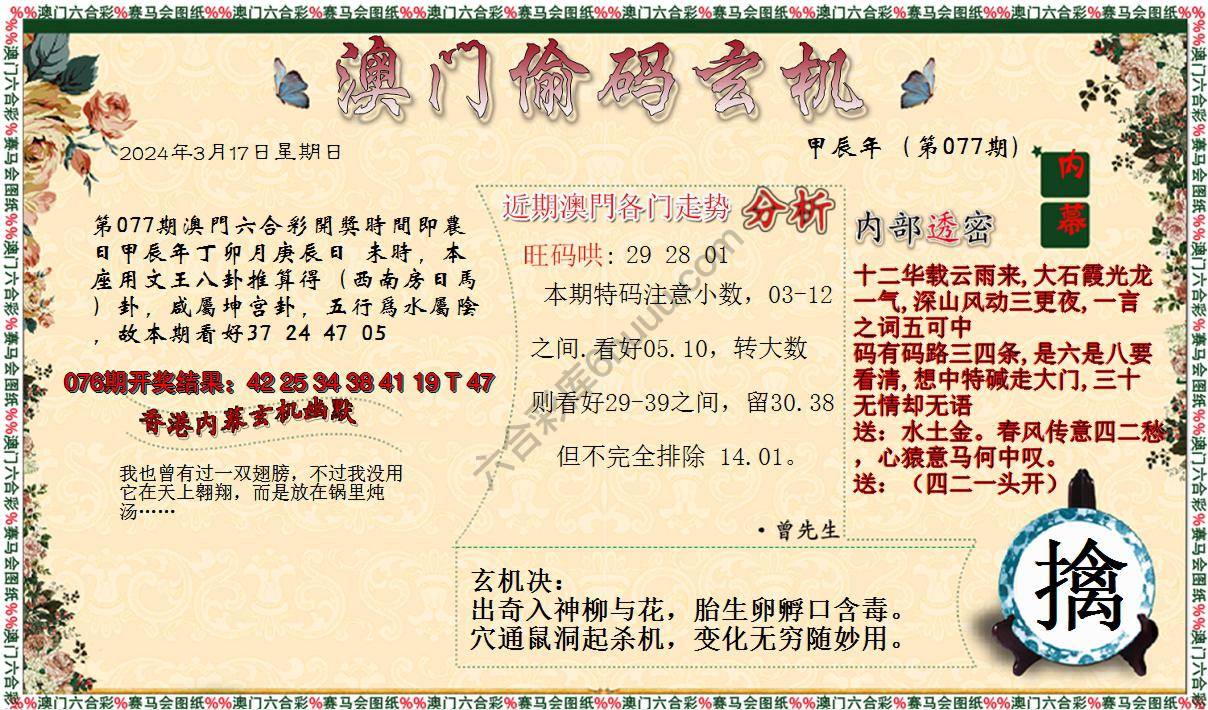 %%澳门六合彩%赛马会图纸%%澳门六合彩%赛马会图纸%%澳门六合彩%赛马会图纸%%澳门六合彩%赛马会图纸%%澳门六合彩%赛马会图纸%%澳门六合彩%赛马会图纸%%
澳门偷码玄机
2024年3月17日星期日
甲辰年（第077期）
内
幕
第077期澳門六合彩開獎時間即農
日甲辰年丁卯月庚辰日 未時，本
座用文王八卦推算得（西南房日馬
）卦，咸屬坤宫卦，五行爲水屬陰
，故本期看好37 24 47 05
076期开奖结果：42 25 34 38 41 19 T 47
香港内幕玄机幽默
我也曾有过一双翅膀，不过我没用
它在天上翱翔，而是放在锅里炖
汤……
近期澳門各门走势 分析
旺码哄：29 28 01
本期特码注意小数，03-12
之间.看好05.10，转大数
则看好29-39之间，留30.38
但不完全排除 14.01。
·曾先生
内部透密
十二华载云雨来,大石霞光龙
一气,深山风动三更夜,一言
之词五可中
码有码路三四条,是六是八要
看清,想中特碱走大门,三十
无情却无语
送：水土金。春风传意四二愁
，心猿意马何中叹。
送：（四二一头开）
玄机决：
出奇入神柳与花，胎生卵孵口含毒。
穴通鼠洞起杀机，变化无穷随妙用。
擒
%%澳门六合彩%赛马会图纸%%澳门六合彩%赛马会图纸%%澳门六合彩%赛马会图纸%%澳门六合彩%赛马会图纸%%澳门六合彩%赛马会图纸%%澳门六合彩%赛马会图纸%%